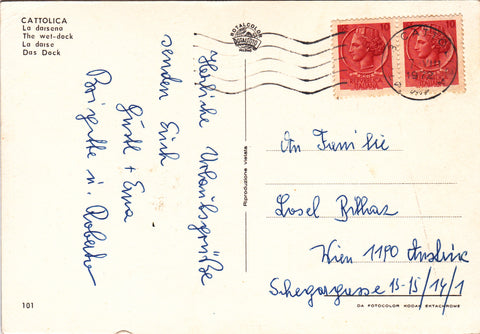 CATTOLICA
La darsena
The wet-dock
La darse
Das Dock
ROTALCOLOR
Herzliche Urlaubsgrüße
senden Euch
Gustl + Erna
Brigitte u. Roberto
Riproduzione vietata
10
10
An Familie
Losel Bilhaz
Wien 1190 Austria
13-15/14/1
101
DA FOTOCOLOR KODAK EKTACHROME